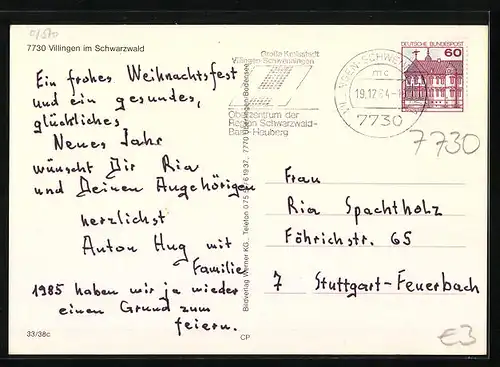 7730 Villingen im Schwarzwald
Ein frohes Weihnachtsfest
und ein gesundes,
glückliches
Neues Jahr
wünscht Dir Ria
und Deinen Angehörigen
herzlichst
Anton Hug mit
Familie
1985 haben wir ja wieder
einen Grund zum
feiern.
33/38c
CP
Bildverlag Werner KG., Telefon
7770 Überlingen/Bodensee
Große Kreisstadt
Villingen-Schwenningen
Oberzentrum der
Region Schwarzwald-
Baar-Heuberg
mc
19.12.84-
7730
DEUTSCHE BUNDESPOST
60
7730
Frau
Ria Spachtholz
Föhrichstr. 65
7 Stuttgart-Feuerbach
€3